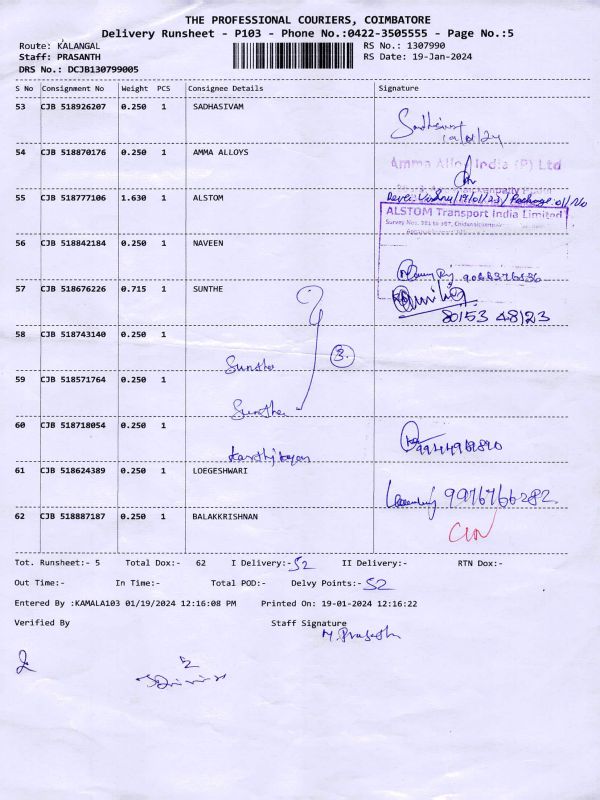 THE PROFESSIONAL COURIERS, COIMBATORE
Delivery Runsheet - P103 - Phone No.:0422-3505555 - Page No.:5
Route: KALANGAL
RS No.: 1307990
Staff: PRASANTH
RS Date: 19-Jan-2024
DRS No.: DCJB130799005
S No Consignment No Weight PCS Consignee Details Signature
53 CJB 518926207 0.250 1 SADHASIVAM
54 CJB 518870176 0.250 1 AMMA ALLOYS
Amma Alloy India (P) Ltd
55 CJB 518777106 1.630 1 ALSTOM
ALSTOM Transport India Limited
56 CJB 518842184 0.250 1 NAVEEN
57 CJB 518676226 0.715 1 SUNTHE
80153 48123
58 CJB 518743140 0.250 1
3.
Sunthe
59 CJB 518571764 0.250 1
Sunthe
60 CJB 518718054 0.250 1
Karthikeyan
61 CJB 518624389 0.250 1 LOEGESHWARI
9976766282
62 CJB 518887187 0.250 1 BALAKKRISHNAN
Tot. Runsheet:- 5 Total Dox:- 62 I Delivery:- 52 II Delivery:- RTN Dox:-
Out Time:- In Time:- Total POD:- Delvy Points:- 52
Entered By :KAMALA103 01/19/2024 12:16:08 PM Printed On: 19-01-2024 12:16:22
Verified By Staff Signature
M. Prasath